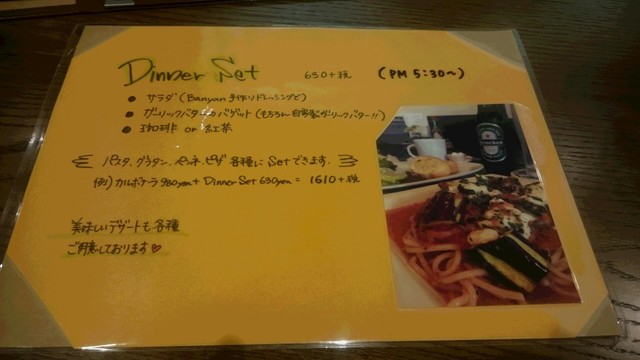 Dinner Set 630+税 (PM 5:30〜)
● サラダ (Banyan 手作りドレッシングで)
● ガーリックバターのバゲット (もちろん自家製ガーリックバター!!)
● 珈琲 or 紅茶
パスタ、グラタン、ペンネ、ピザ 各種に Set できます.
(例) カルボナーラ 980yen + Dinner Set 630yen = 1610+税
美味しいデザートも各種
ご用意しております♡
Heineken